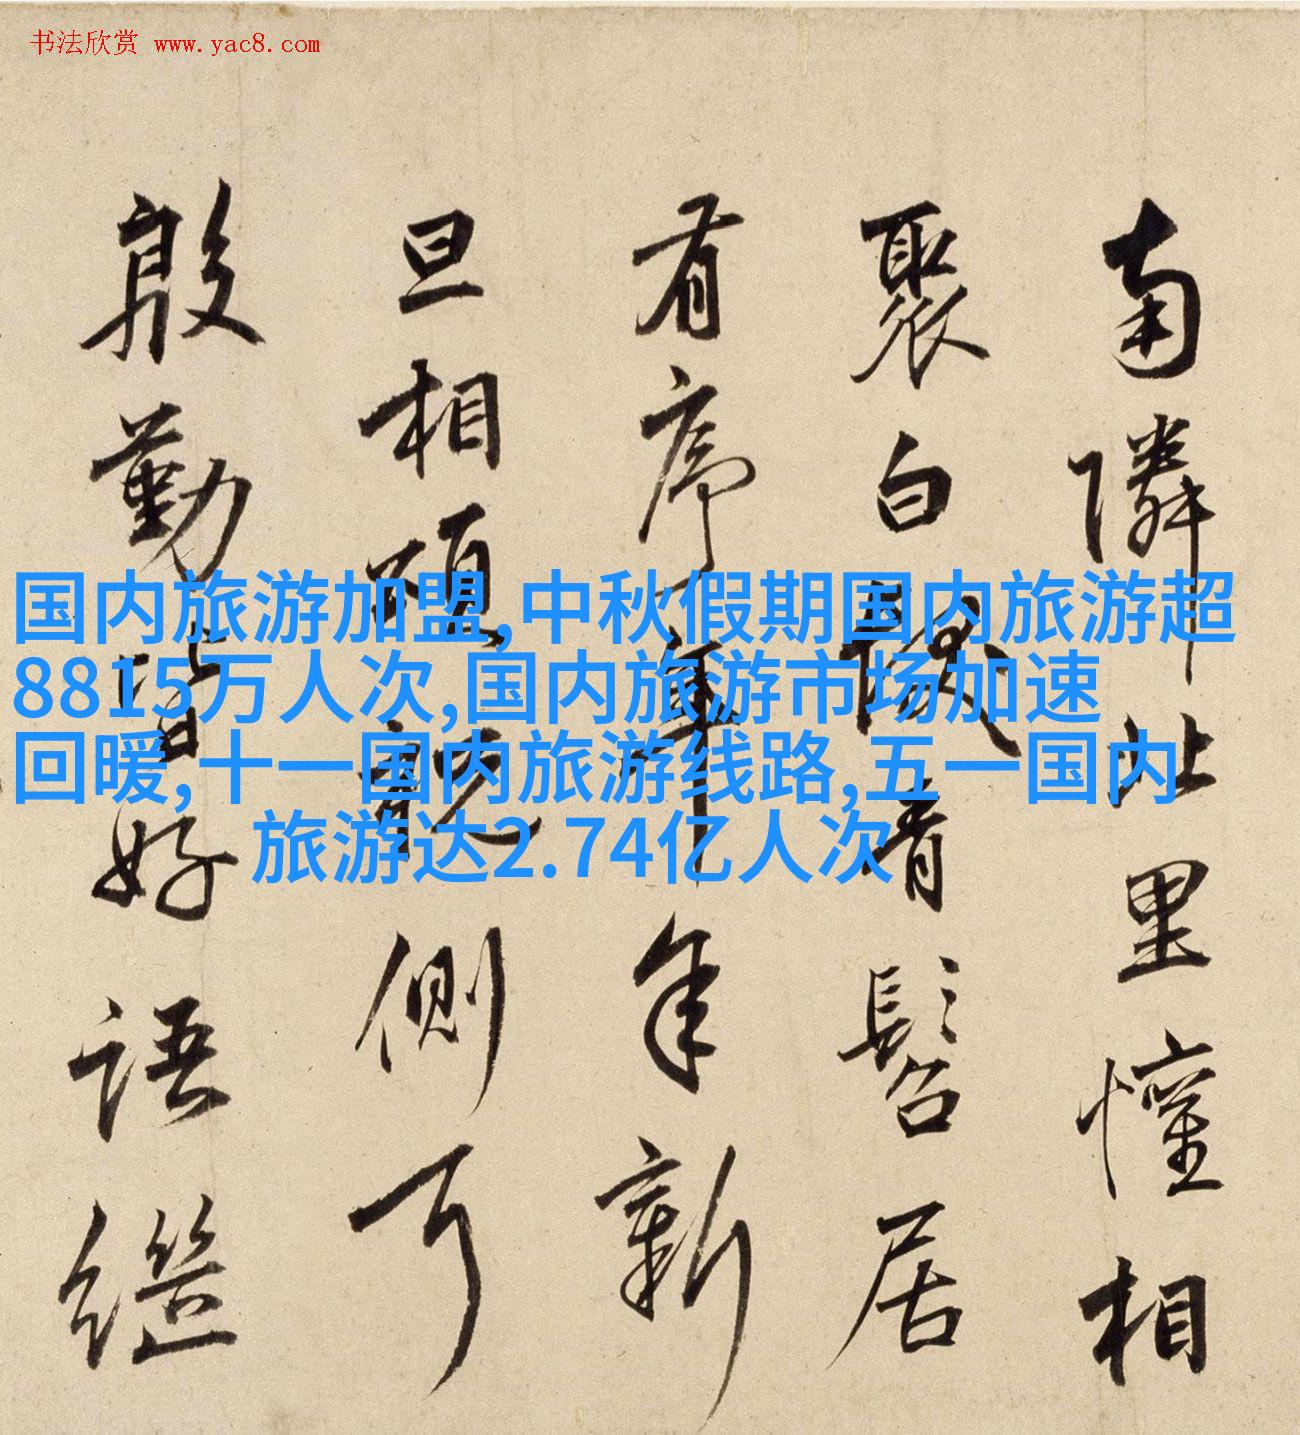 书法欣赏 www.yac8.com
南隣北里懽相
聚白髮青髫居
有序年年新
旦相側耳
殷勤皆好語繼
国内旅游加盟,中秋假期国内旅游超
8815万人次,国内旅游市场加速
回暖,十一国内旅游线路,五一国内
旅游达2.74亿人次